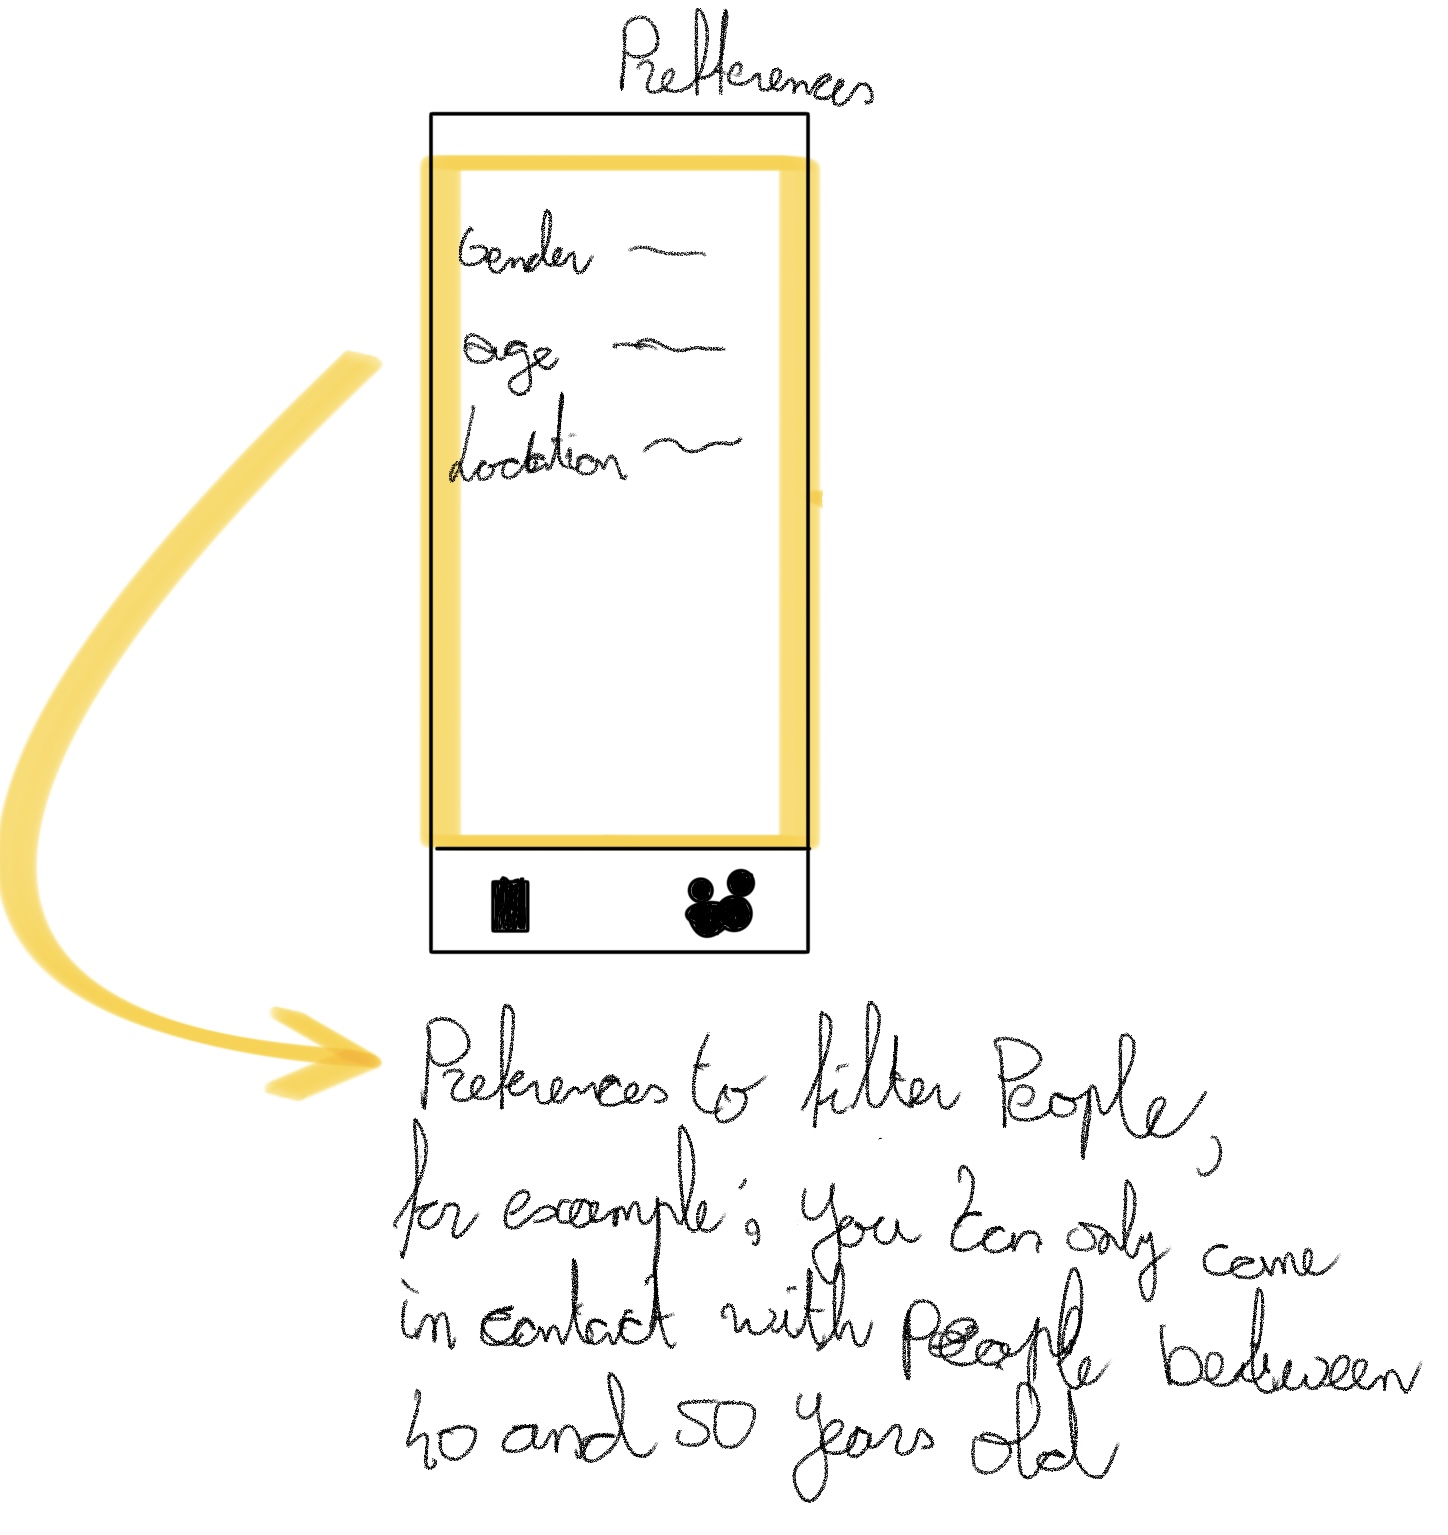 Prefferences
Gender
age
Location
Preferences to filter People,
for example; you can only come
in contact with People between
40 and 50 years old